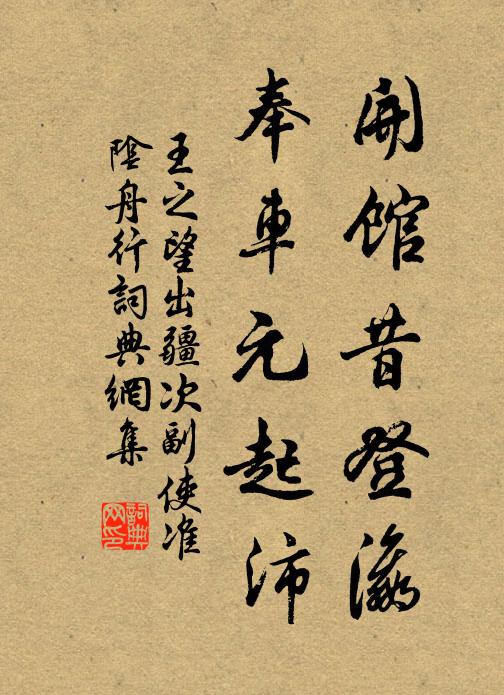 開館昔登瀛
奉車元起沛
王之望出疆次副使淮
陰舟行詞典網集
詞典網印